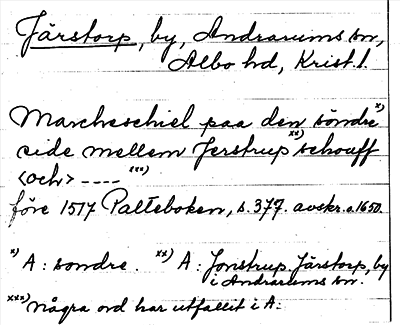 Järstorp, by, Andrarums sn,
Albo hd, Krist. l.
Marcheschiel paa den söndre x)
side mellem Jerstrup xx) schouff
<och> ---- xxx)
före 1517 Palteboken, s. 377. avskr. c. 1650.
x) A: sondre. xx) A: Jonstrup. Järstorp, by
i Andrarums sn.
xxx) Några ord har utfallit i A: